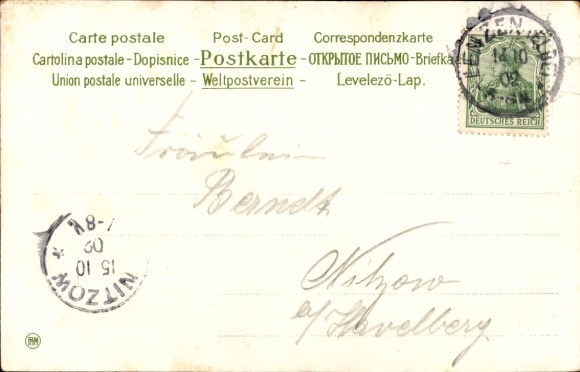 Carte postale Post-Card Correspondenzkarte
Cartolina postale - Dopisnice - Postkarte - ОТКРЫТОЕ ПИСЬМО - Briefka
Union postale universelle - Weltpostverein - Levelező-Lap.
LENZEN
14 10
02
DEUTSCHES REICH
Fräulein
Berndt
Nitzow
a/Havelberg.
NITZOW *
15 10
02
7-8V.